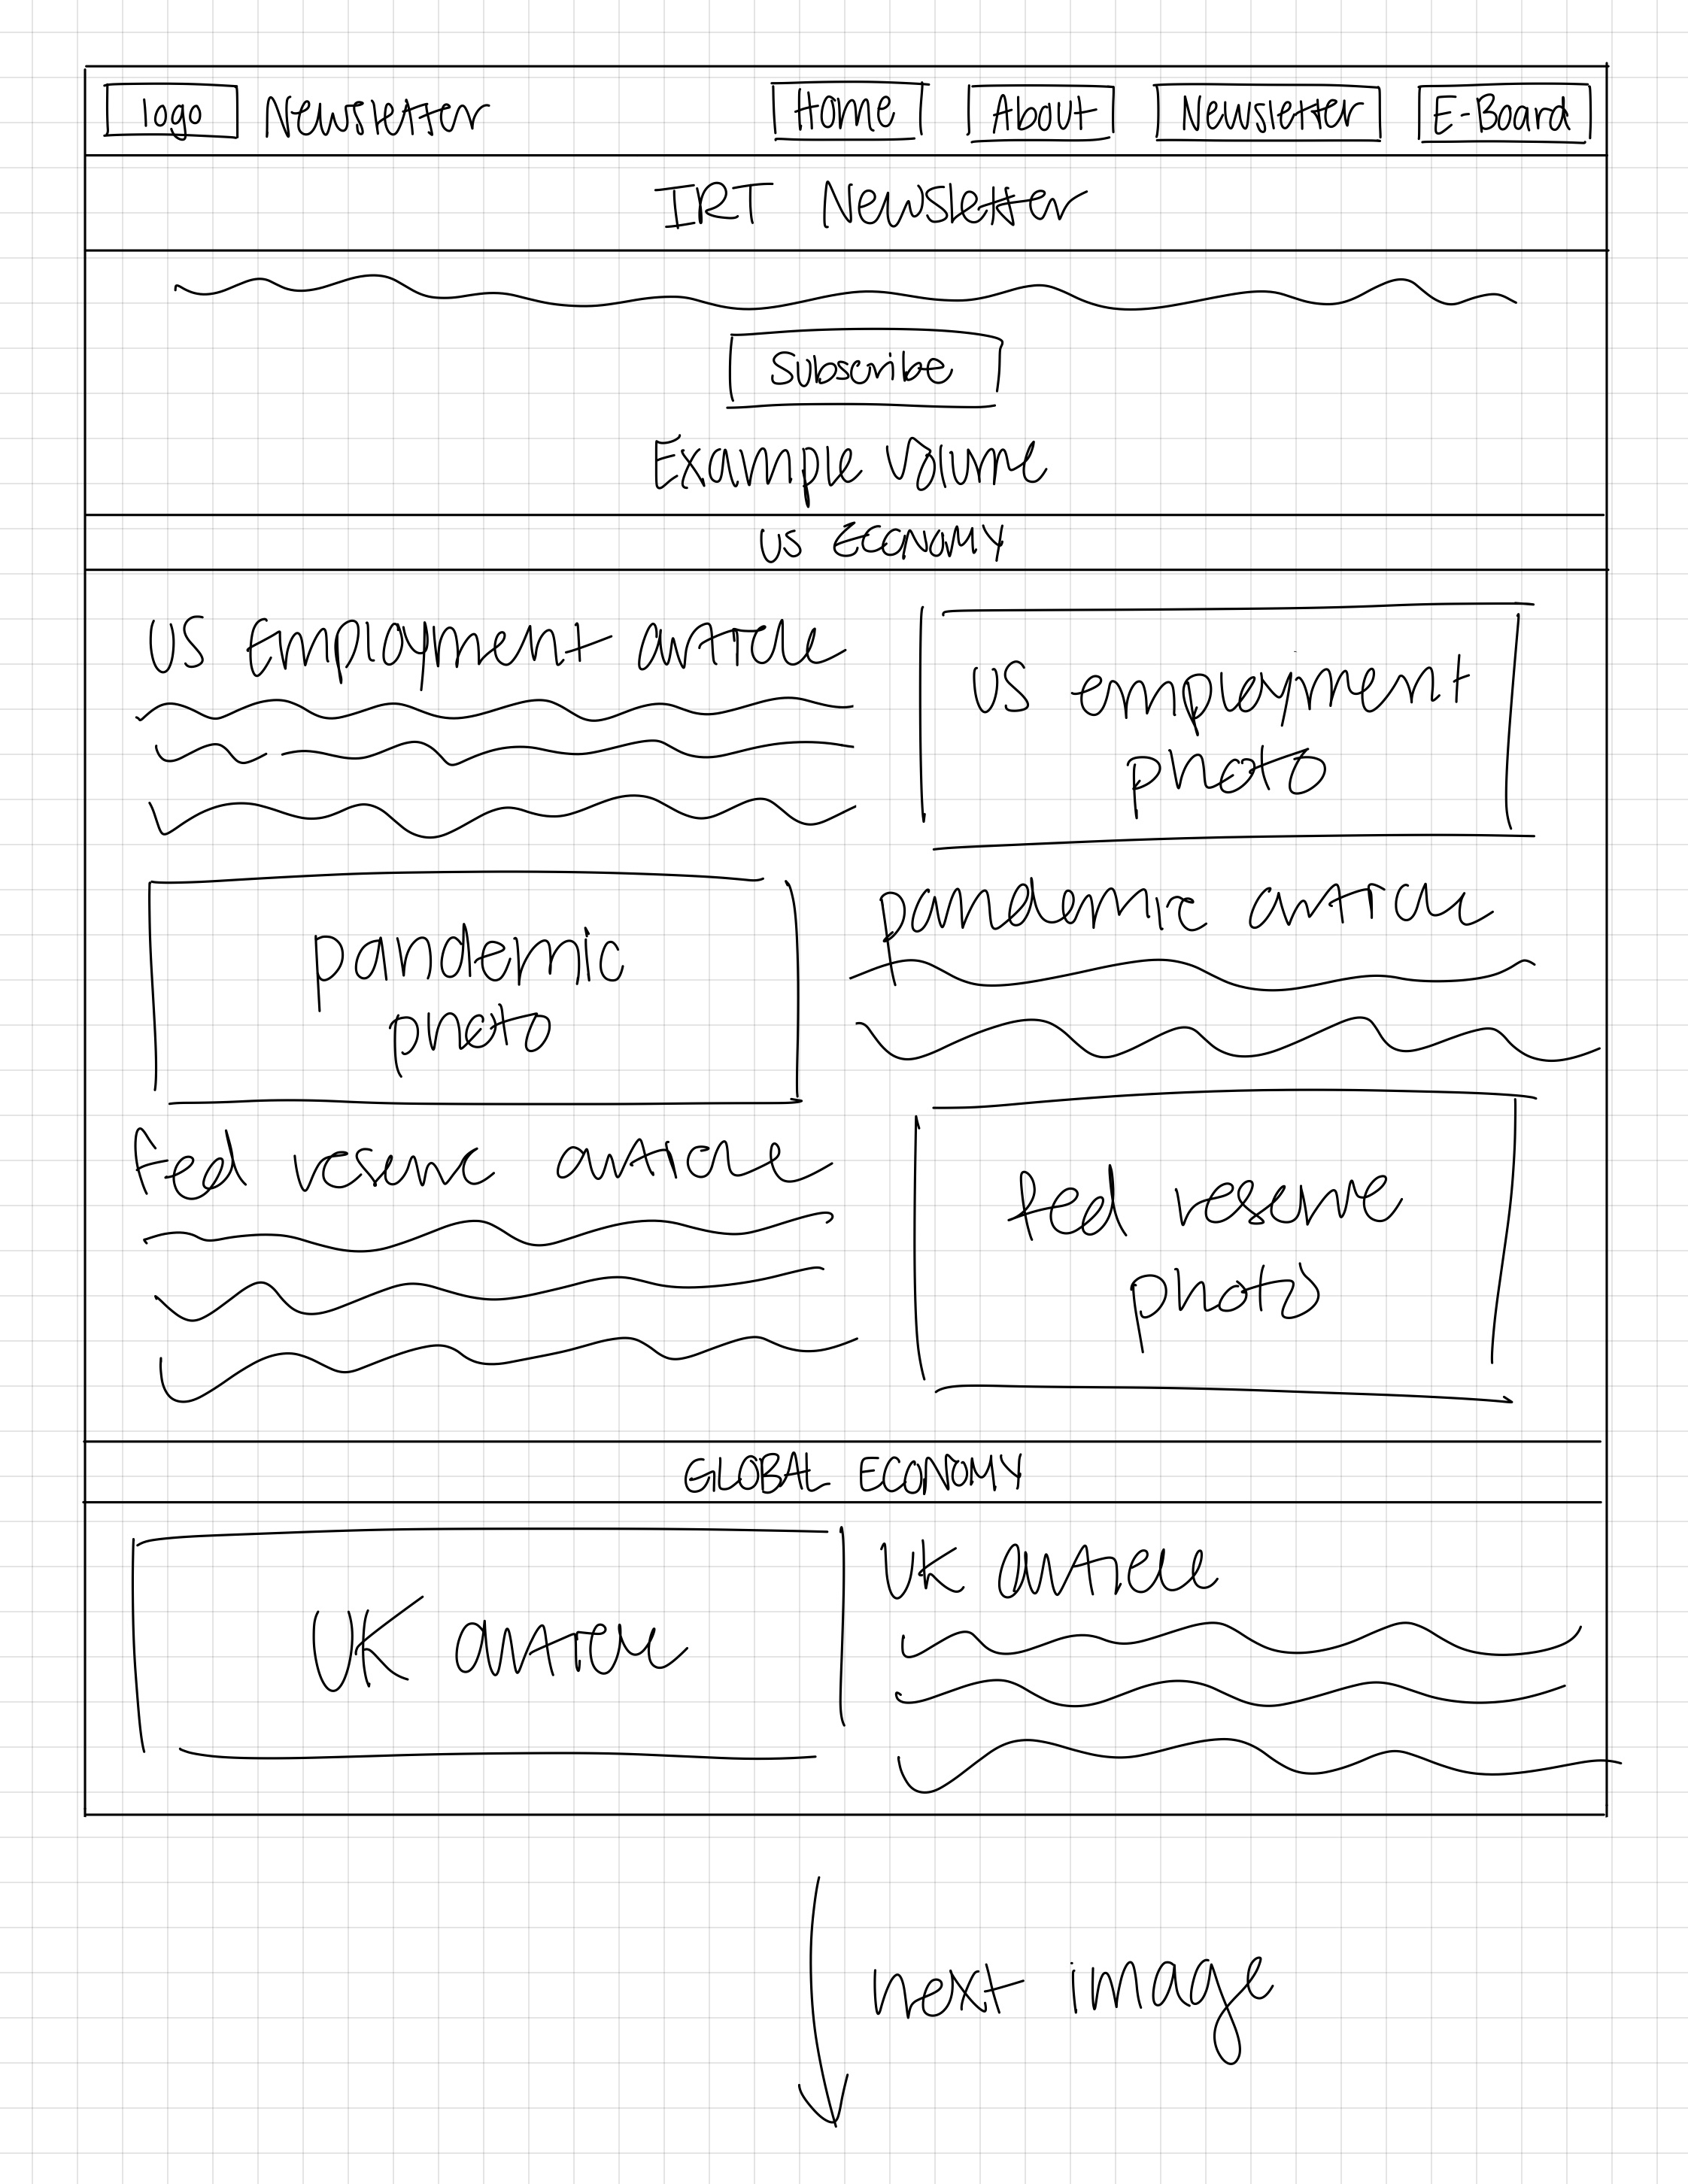 logo Newsletter Home About Newsletter E-Board
IRT Newsletter
Subscribe
Example Volume
US ECONOMY
US Employment article
US employment
photo
pandemic article
pandemic
photo
fed reserve article
fed reserve
photo
GLOBAL ECONOMY
UK article
UK article
next image